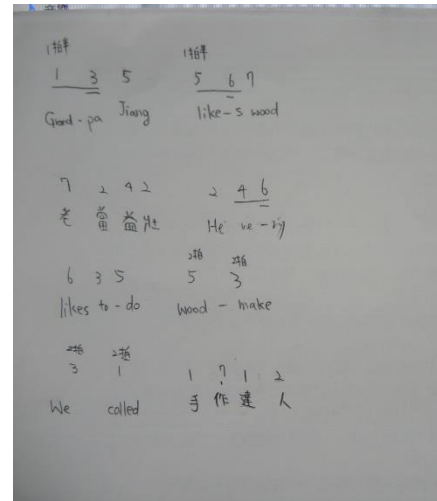 1拍半 1拍半
1 3 5 5 6 7
Grand-pa Jiang like-s wood
7 2 4 2 2 4 6
老當益壯 He ve-ry
2拍 2拍
6 3 5 5 3
likes to-do wood-make
2拍 2拍
3 1 1 7 1 2
We called 手作達人